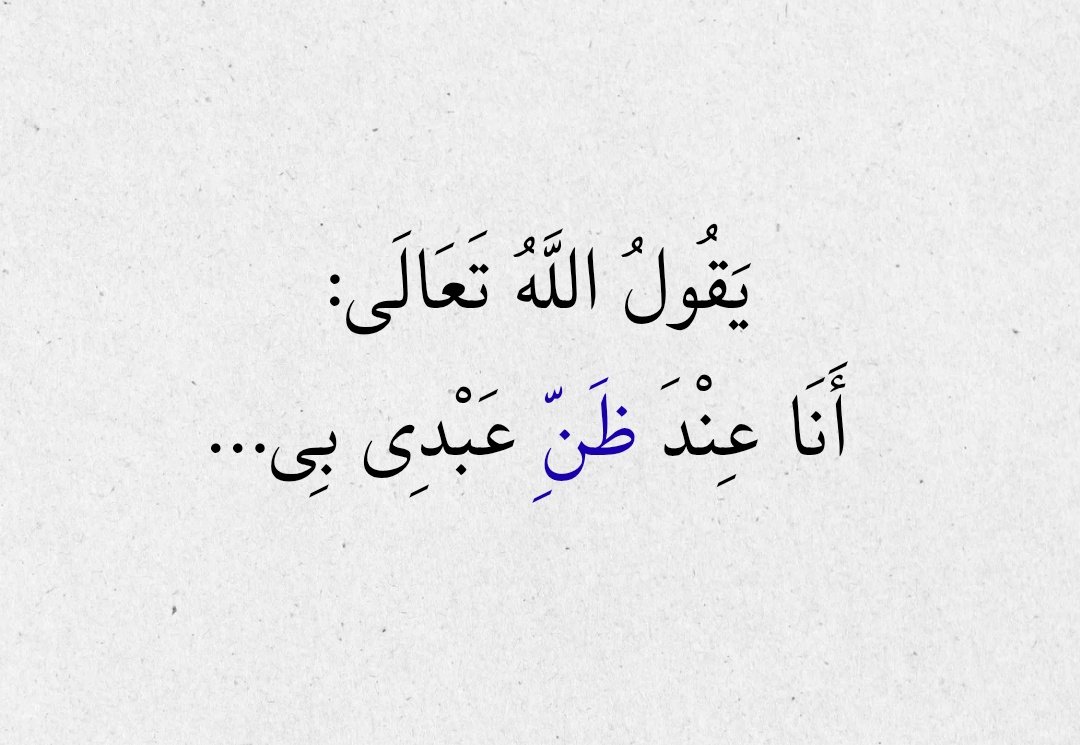 يَقُولُ اللَّهُ تَعَالَى:
أَنَا عِنْدَ ظَنِّ عَبْدِى بِى...